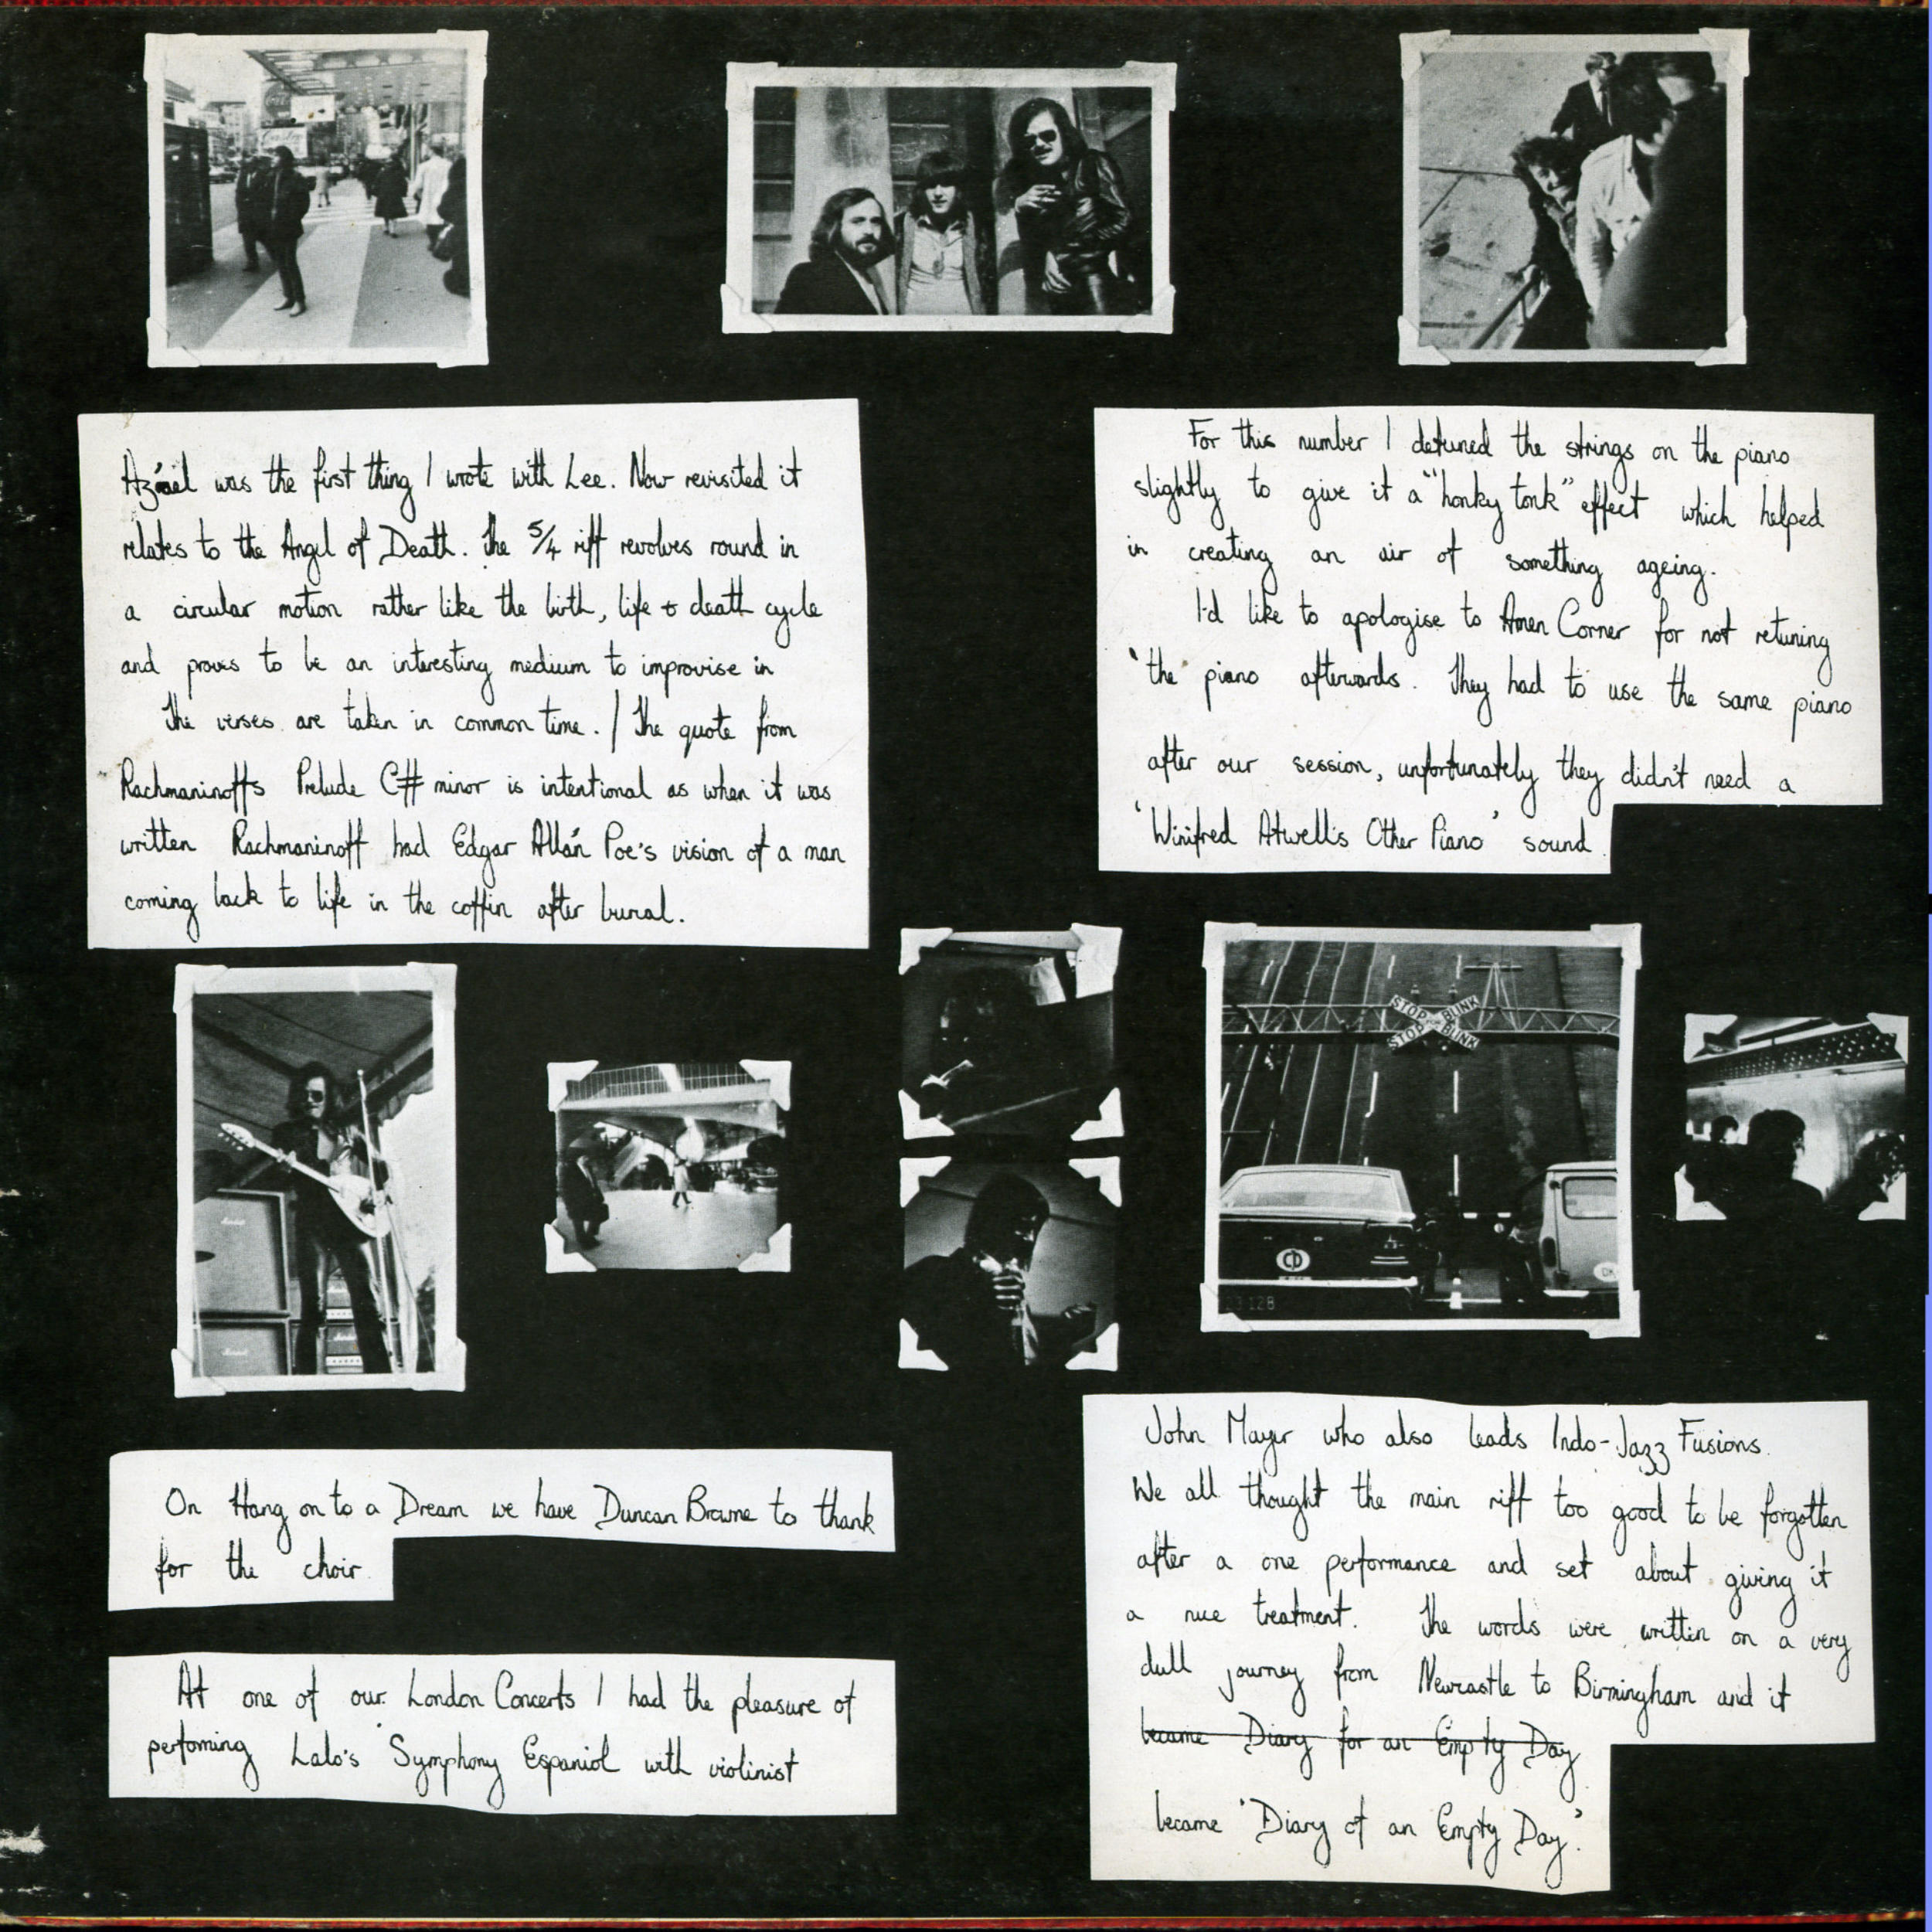 Az'rael was the first thing I wrote with Lee. Now revisited it
relates to the Angel of Death. The 5/4 riff revolves round in
a circular motion rather like the birth, life & death cycle
and proves to be an interesting medium to improvise in
The verses are taken in common time. / The quote from
Rachmaninoffs Prelude C# minor is intentional as when it was
written Rachmaninoff had Edgar Allan Poe's vision of a man
coming back to life in the coffin after burial.
For this number I detuned the strings on the piano
slightly to give it a "honky tonk" effect which helped
in creating an air of something ageing.
I'd like to apologise to Amen Corner for not retuning
the piano afterwards. They had to use the same piano
after our session, unfortunately they didn't need a
'Winifred Atwell's Other Piano' sound.
STOP ON BLINK
STOP BLINK
CD
DK
Marshall
Marshall
Marshall
On Hang on to a Dream we have Duncan Browne to thank
for the choir.
At one of our London Concerts I had the pleasure of
performing Lalo's Symphony Espaniol with violinist
John Mayer who also leads Indo-Jazz Fusions.
We all thought the main riff too good to be forgotten
after a one performance and set about giving it
a nice treatment. The words were written on a very
dull journey from Newcastle to Birmingham and it
became Diary for an Empty Day
became 'Diary of an Empty Day'.